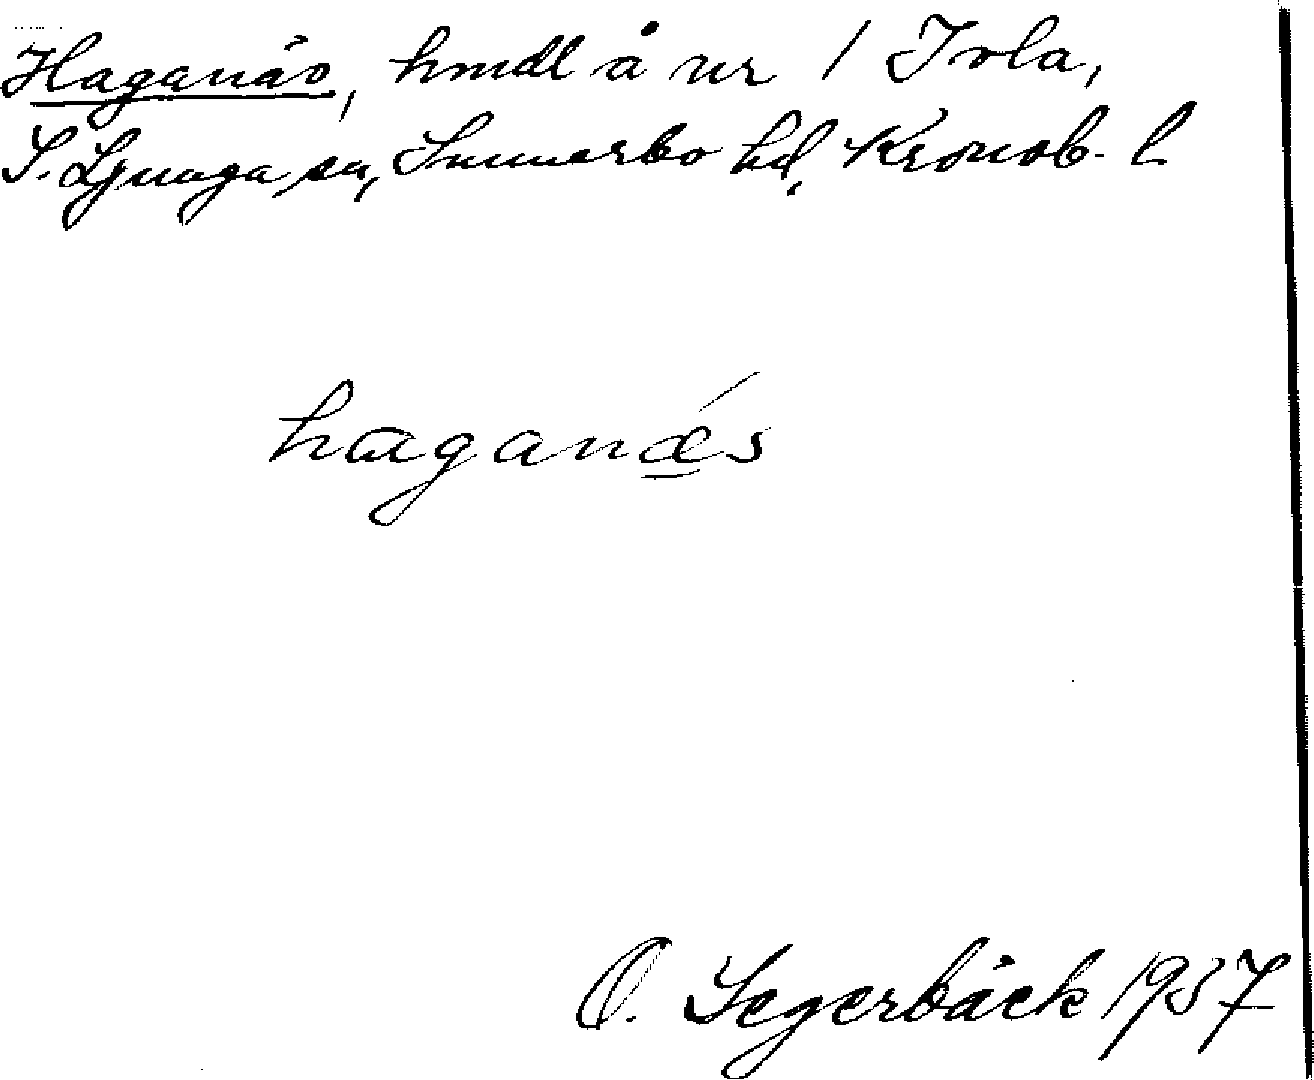 Haganäs, hmdl å nr 1 Ivla,
S. Ljunga sn, Sunnerbo hd, Kronob. l
haganǽs
O. Segerbäck 1937